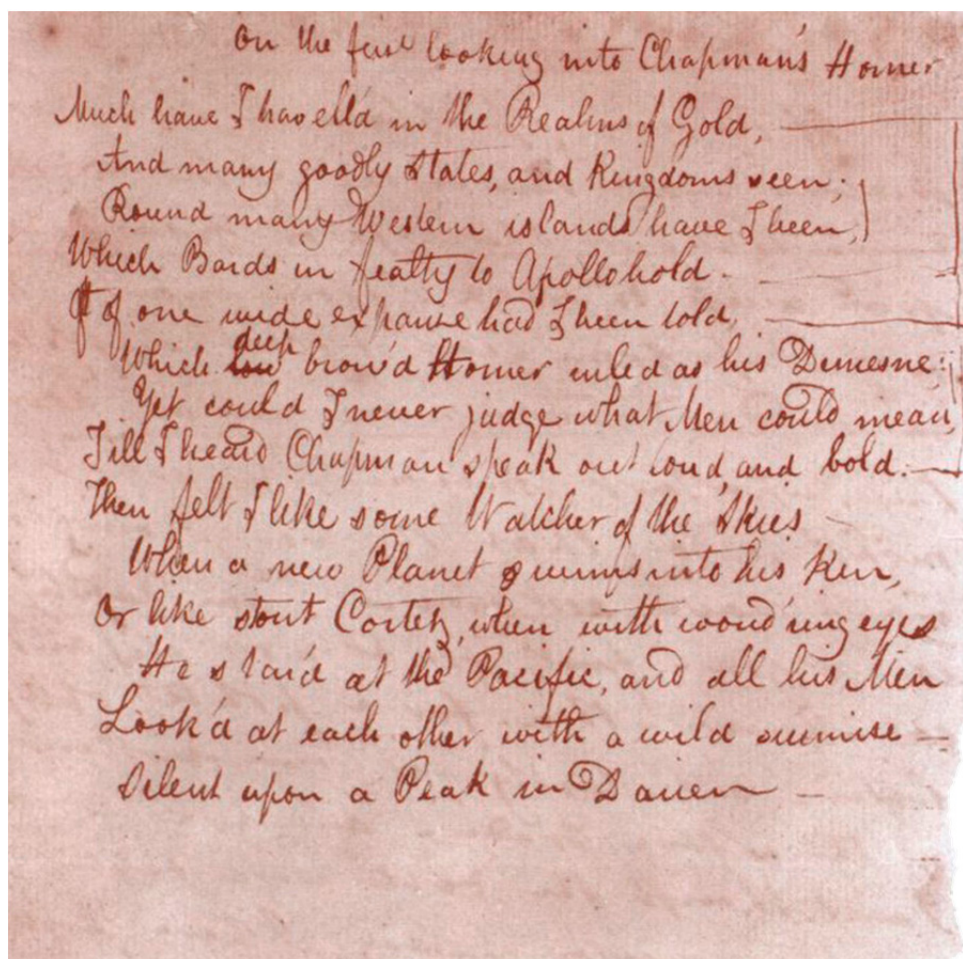 On the first looking into Chapman's Homer
Much have I travell'd in the Realms of Gold,
And many goodly States, and Kingdoms seen;
Round many Western islands have I been,
Which Bards in fealty to Apollo hold.
Of one wide expanse had I been told,
Which low deep brow'd Homer ruled as his Demesne:
Yet could I never judge what Men could mean,
Till I heard Chapman speak out loud, and bold.
Then felt I like some Watcher of the Skies
When a new Planet swims into his Ken,
Or like stout Cortez, when with wond'ring eyes
He star'd at the Pacific, and all his Men
Look'd at each other with a wild surmise —
Silent upon a Peak in Darien —